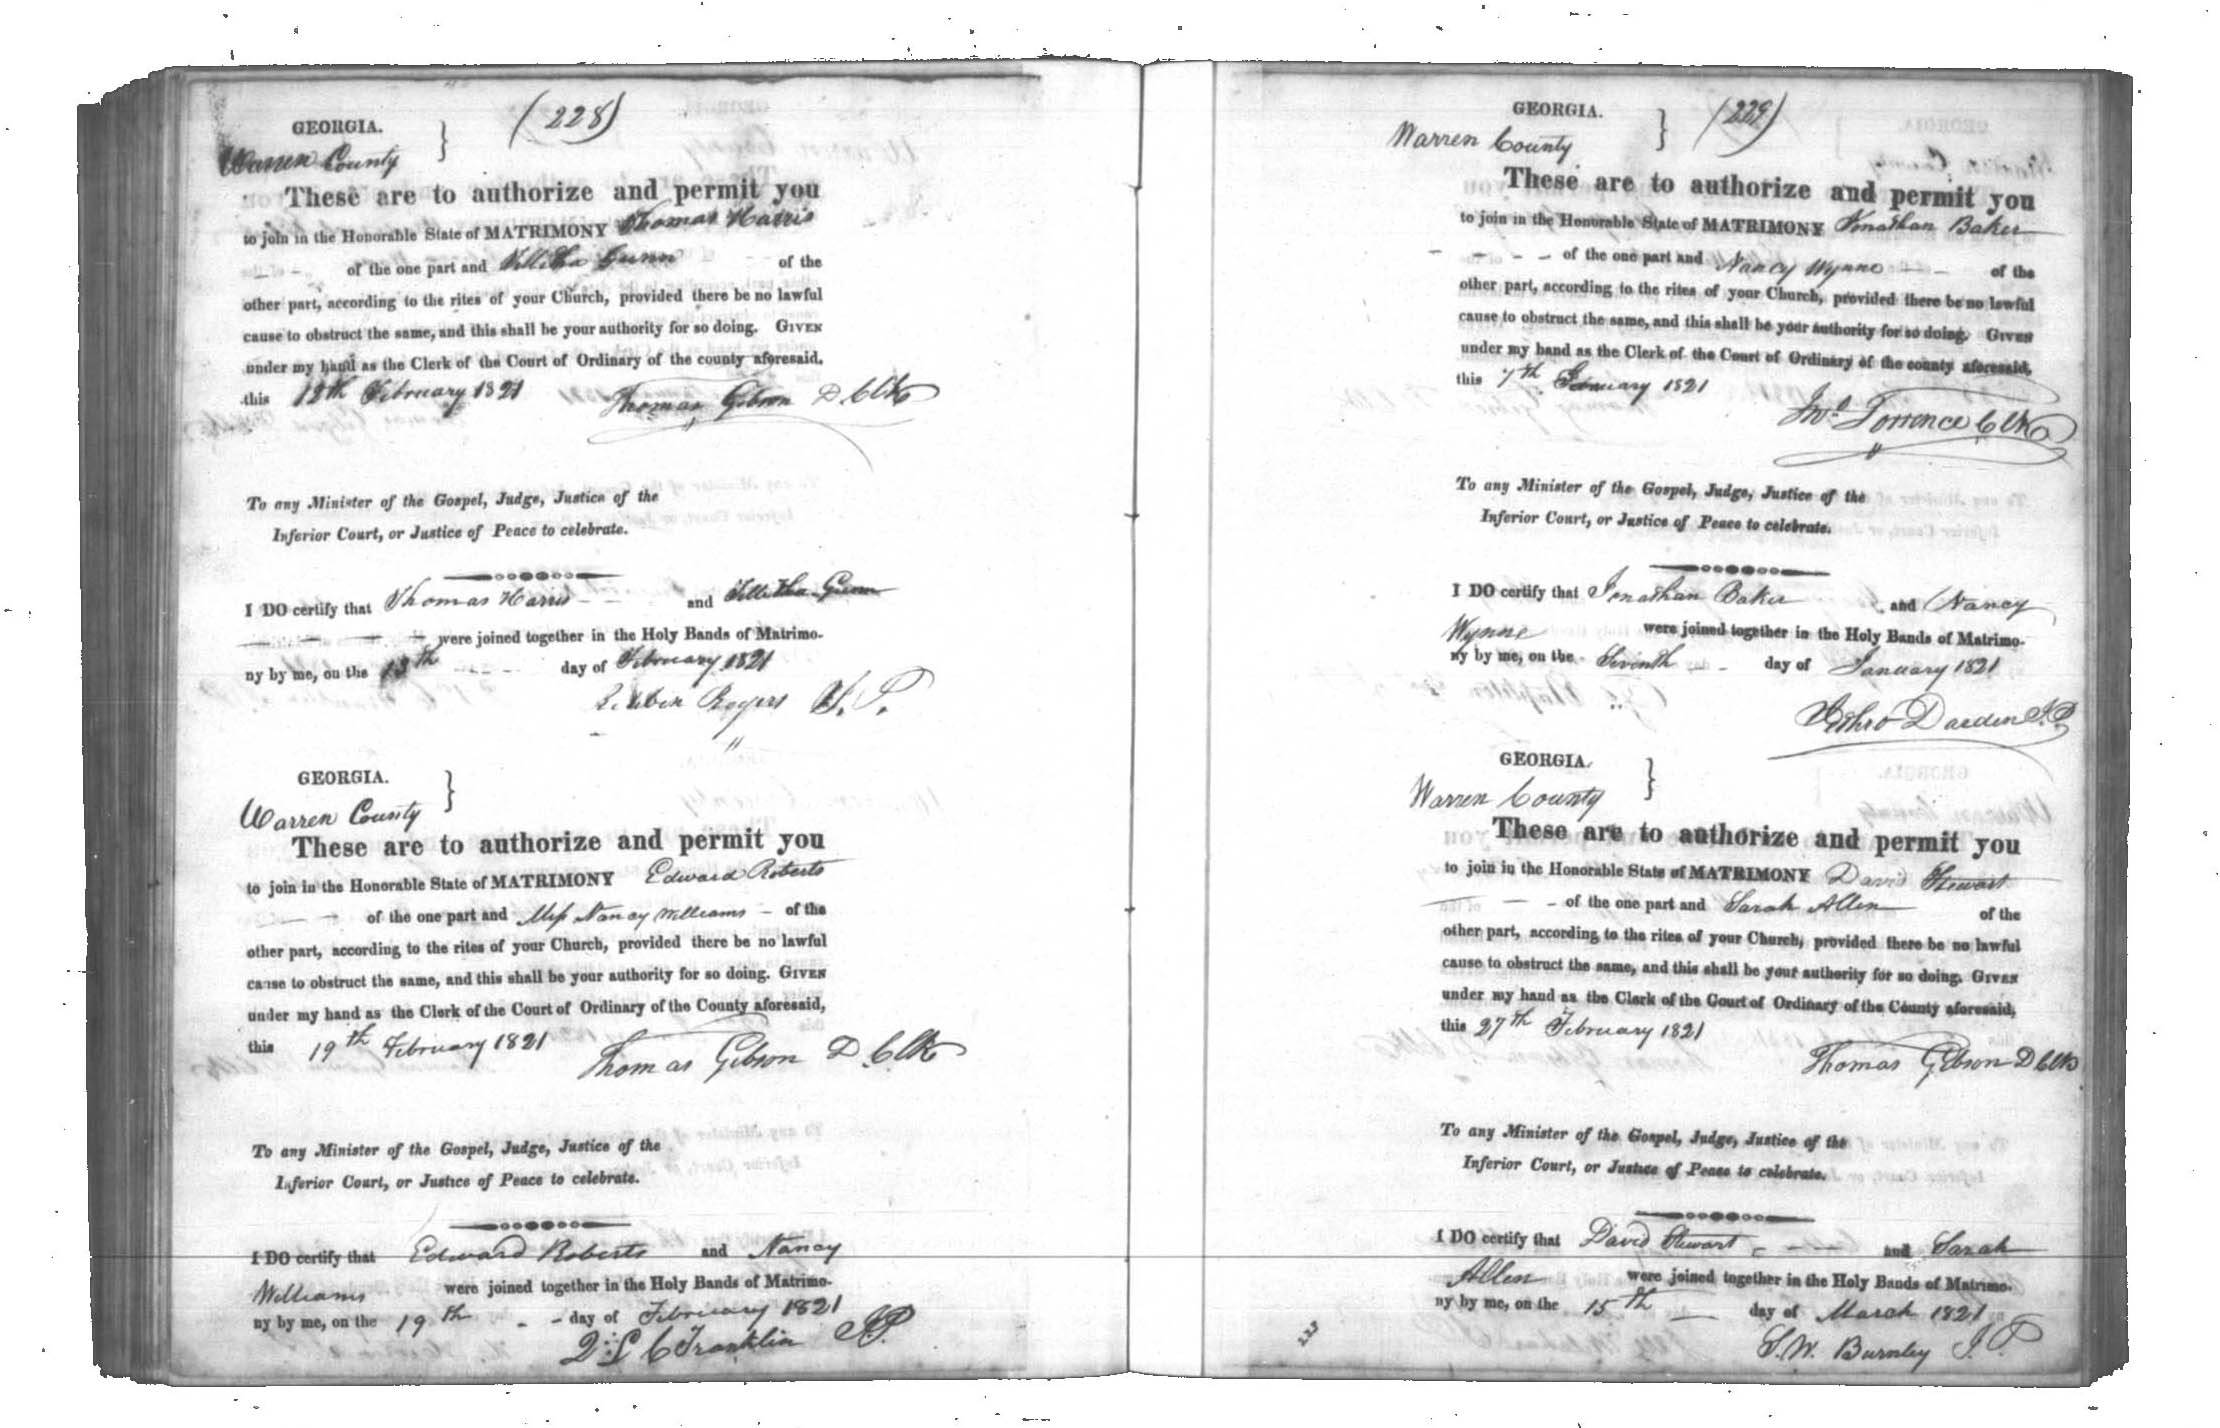 (228)
GEORGIA. }
Warren County
These are to authorize and permit you
to join in the Honorable State of MATRIMONY Thomas Harris
of the one part and Tillitha Gunn of the
other part, according to the rites of your Church, provided there be no lawful
cause to obstruct the same, and this shall be your authority for so doing. GIVEN
under my hand as the Clerk of the Court of Ordinary of the county aforesaid,
this 12th February 1821 Thomas Gibson D. Clk
To any Minister of the Gospel, Judge, Justice of the
Inferior Court, or Justice of Peace to celebrate.
I DO certify that Thomas Harris and Tillitha Gunn
were joined together in the Holy Bands of Matrimo-
ny by me, on the 13th day of February 1821
Reubin Rogers J. P.
GEORGIA. }
Warren County
These are to authorize and permit you
to join in the Honorable State of MATRIMONY Edward Roberts
of the one part and Miss Nancy Williams of the
other part, according to the rites of your Church, provided there be no lawful
cause to obstruct the same, and this shall be your authority for so doing. GIVEN
under my hand as the Clerk of the Court of Ordinary of the County aforesaid,
this 19th February 1821 Thomas Gibson D. Clk
To any Minister of the Gospel, Judge, Justice of the
Inferior Court, or Justice of Peace to celebrate.
I DO certify that Edward Roberts and Nancy
Williams were joined together in the Holy Bands of Matrimo-
ny by me, on the 19th day of February 1821
Franklin JP.
(229)
GEORGIA. }
Warren County
These are to authorize and permit you
to join in the Honorable State of MATRIMONY Jonathan Baker
of the one part and Nancy Wynne of the
other part, according to the rites of your Church, provided there be no lawful
cause to obstruct the same, and this shall be your authority for so doing. GIVEN
under my hand as the Clerk of the Court of Ordinary of the county aforesaid,
this 7th 1821
Jno. Torrence Clk
To any Minister of the Gospel, Judge, Justice of the
Inferior Court, or Justice of Peace to celebrate.
I DO certify that Jonathan Baker and Nancy
Wynne were joined together in the Holy Bands of Matrimo-
ny by me, on the Seventh day of January 1821
Jethro Darden J.P.
GEORGIA. }
Warren County
These are to authorize and permit you
to join in the Honorable State of MATRIMONY David Stewart
of the one part and Sarah Allen of the
other part, according to the rites of your Church, provided there be no lawful
cause to obstruct the same, and this shall be your authority for so doing. GIVEN
under my hand as the Clerk of the Court of Ordinary of the County aforesaid,
this 27th February 1821
Thomas Gibson D Clk
To any Minister of the Gospel, Judge, Justice of the
Inferior Court, or Justice of Peace to celebrate.
I DO certify that David Stewart and Sarah
Allen were joined together in the Holy Bands of Matrimo-
ny by me, on the 15th day of March 1821
S. W. Burnley J. P.